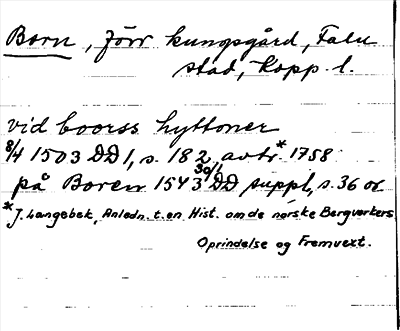 Born, förr kungsgård, Falu
stad, Kopp. l.
vid boorss hyttoner
8/4 1503 DD 1, s. 182, avtr.* 1758
på Boren 1543 30/1 DD suppl, s. 36 or
*J. Langebek, Anledn. t. en Hist. om de norske Bergverkers
Oprindelse og Fremvext.